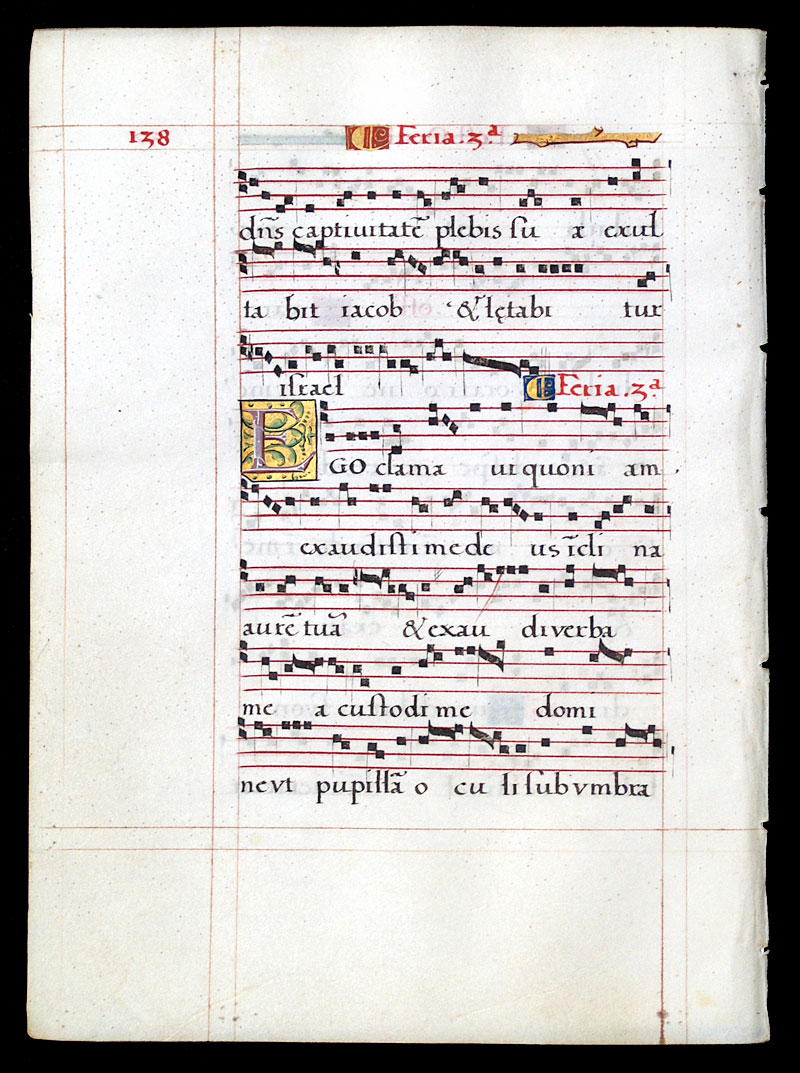 138
Feria. 3ª
dn̄s captiuitatē plebis ſu æ exul
ta bit iacob & lętabi tur
iſrael
Feria. 3ª
EGO clama ui quoni am
exaudiſti me de us īcli na
aurē tuā & exau di verba
me a cuſtodi me domi
ne vt pupillā o cu li ſub vmbra